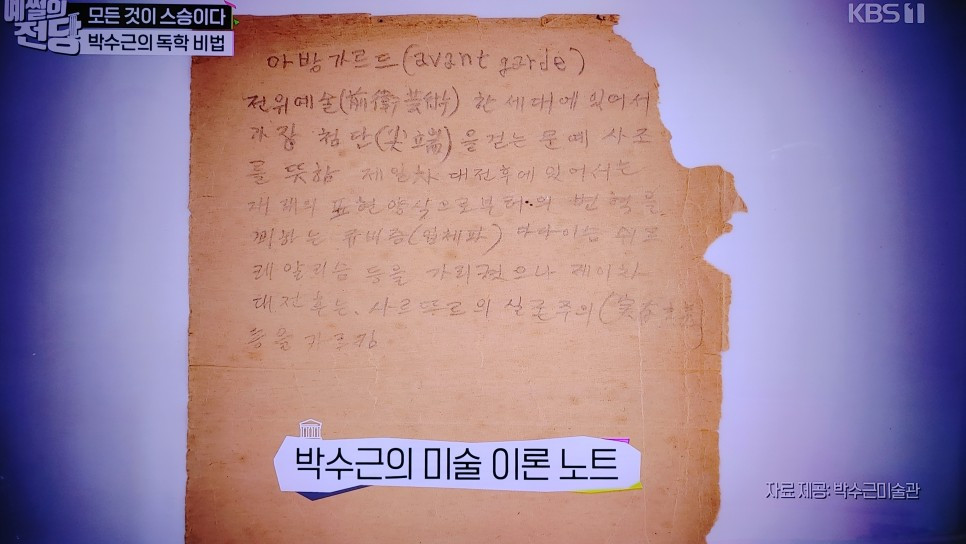 예썰의
전당
모든 것이 스승이다
박수근의 독학 비법
KBS 1
아방가르드(avant garde)
전위예술(前衛芸術) 한 세대에 있어서
가장 첨단(尖端)을 걷는 문예 사조
를 뜻함 제일차 대전후에 있어서는
재래의 표현양식으로부터의 변혁을
꾀하는 큐비즘(입체파) 다다이슴 쉬르
레알리슴 등을 가리켰으나 제이차
대전후는, 사르뜨르의 실존주의(実存主義)
등을 가르킴
박수근의 미술 이론 노트
자료 제공: 박수근미술관